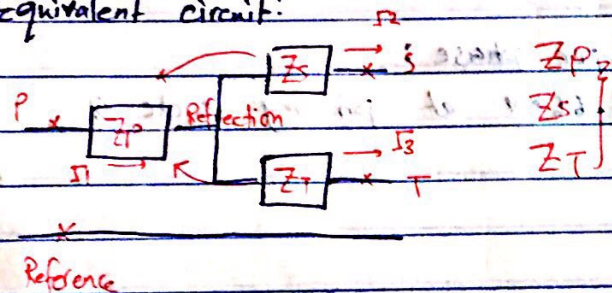 equivalent circuit:
I2
ZS
S
ZP
P
ZP
Reflection
ZS
I1
I3
ZT
ZT
T
Reference